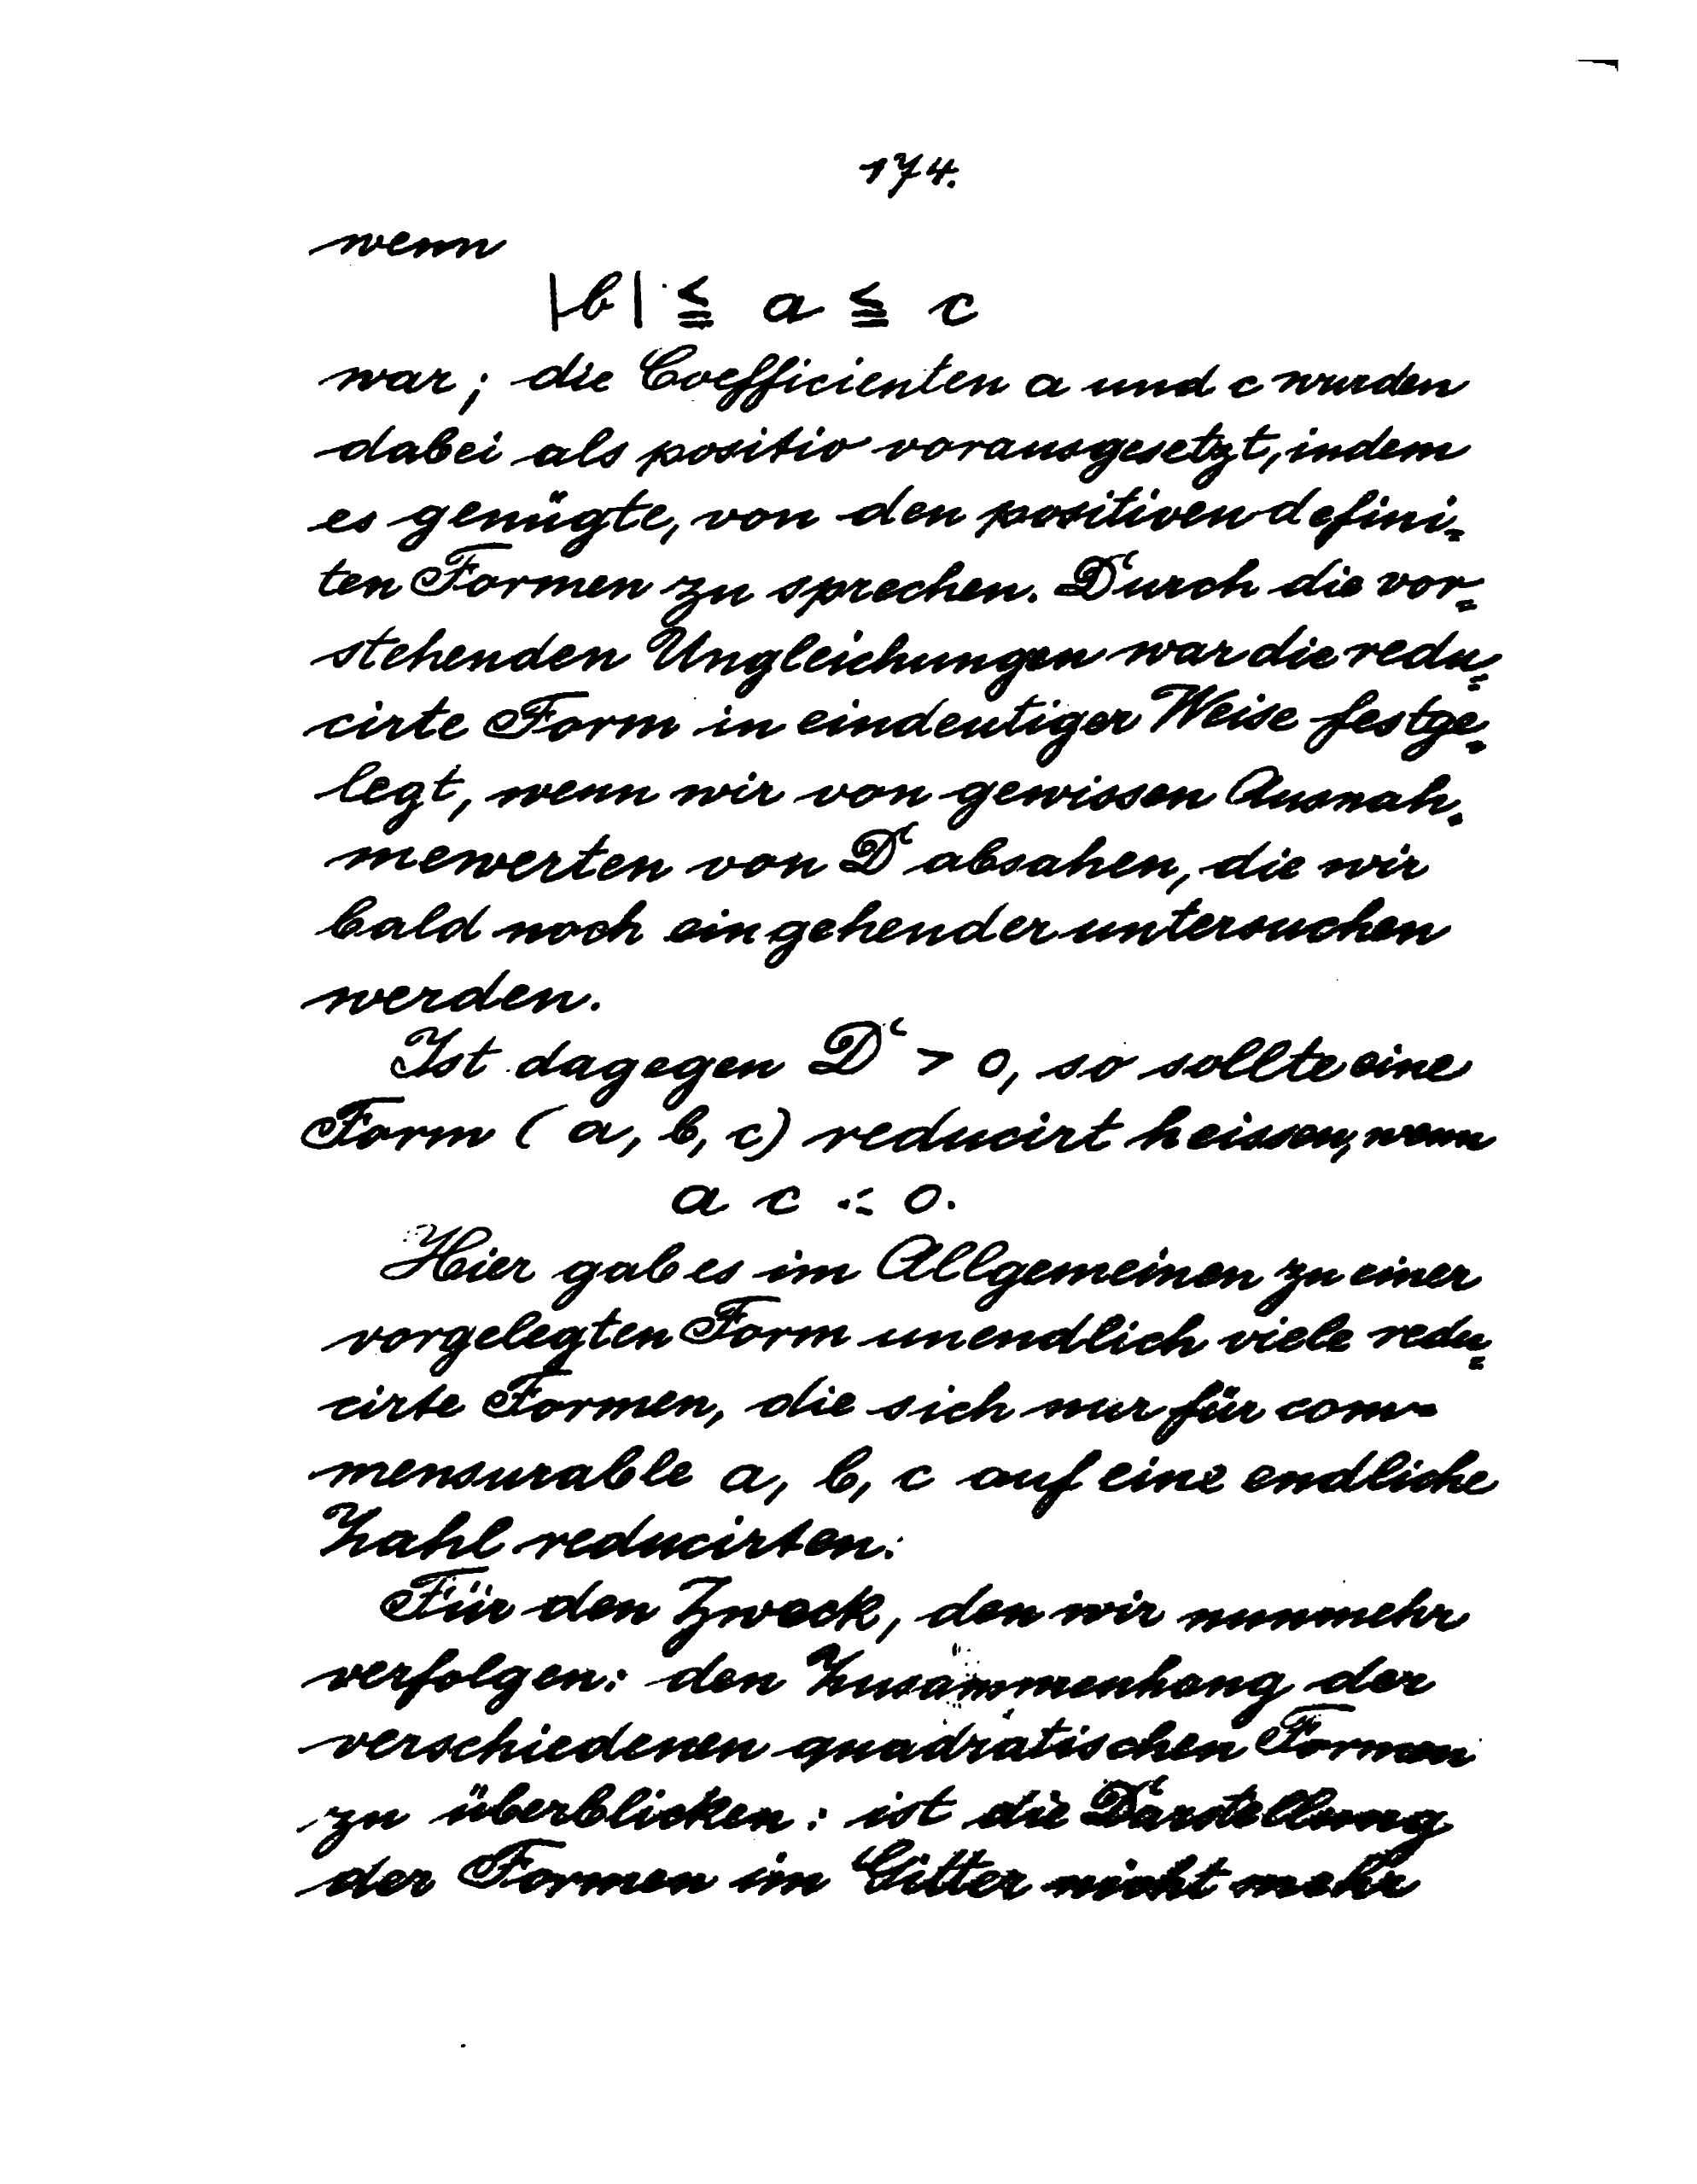 174.
wenn
|b| ≦ a ≦ c
war; die Coefficienten a und c wurden
dabei als positiv vorausgesetzt, indem
es genügte, von den positiven defini=
ten Formen zu sprechen. Durch die vor=
stehenden Ungleichungen war die redu=
cirte Form in eindeutiger Weise festge=
legt, wenn wir von gewissen Ausnah=
mewerten von D absahen, die wir
bald noch eingehender untersuchen
werden.
Ist dagegen D > 0, so sollte eine
Form (a, b, c) reducirt heissen, wenn
a c < 0.
Hier gab es im Allgemeinen zu einer
vorgelegten Form unendlich viele redu=
cirte Formen, die sich nur für com=
mensurable a, b, c auf eine endliche
Zahl reducirten.
Für den Zweck, den wir nunmehr
verfolgen: den Zusammenhang der
verschiedenen quadratischen Formen
zu überblicken: ist die Darstellung
der Formen im Gitter nicht mehr